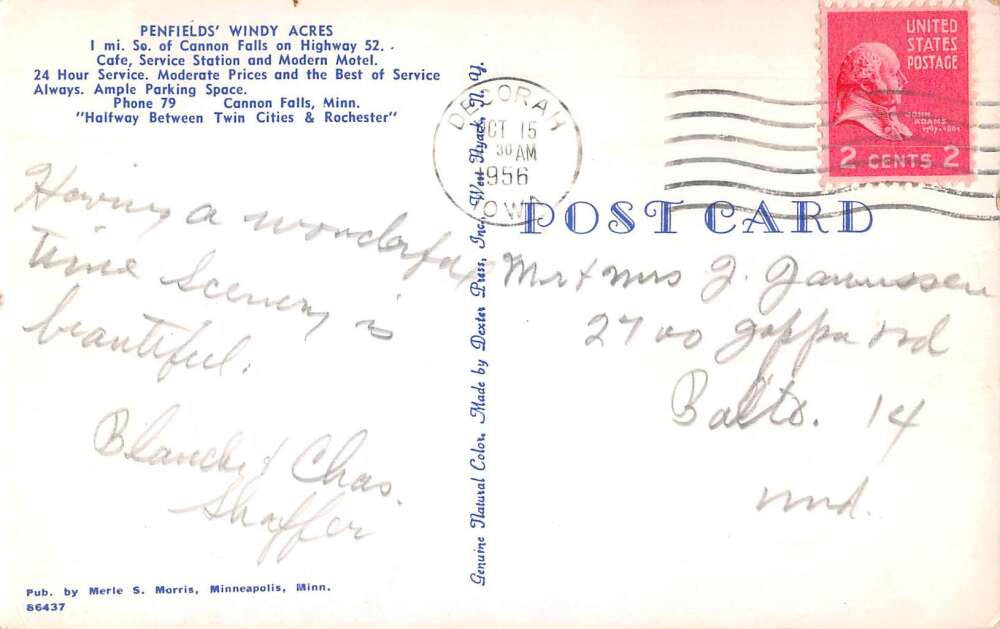 PENFIELDS' WINDY ACRES
1 mi. So. of Cannon Falls on Highway 52.
Cafe, Service Station and Modern Motel.
24 Hour Service. Moderate Prices and the Best of Service
Always. Ample Parking Space.
Phone 79 Cannon Falls, Minn.
"Halfway Between Twin Cities & Rochester"
Having a wonderful
time Scenery is
beautiful.
Blanche & Chas.
Shaffer
Pub. by Merle S. Morris, Minneapolis, Minn.
86437
Genuine Natural Color, Made by Dexter Press, Inc., West Nyack, N. Y.
DECORAH
OCT 15
30 AM
1956
IOWA
UNITED
STATES
POSTAGE
JOHN
ADAMS
2 CENTS 2
POST CARD
Mr + Mrs J.
2700 Rd
Balto. 14
Md.